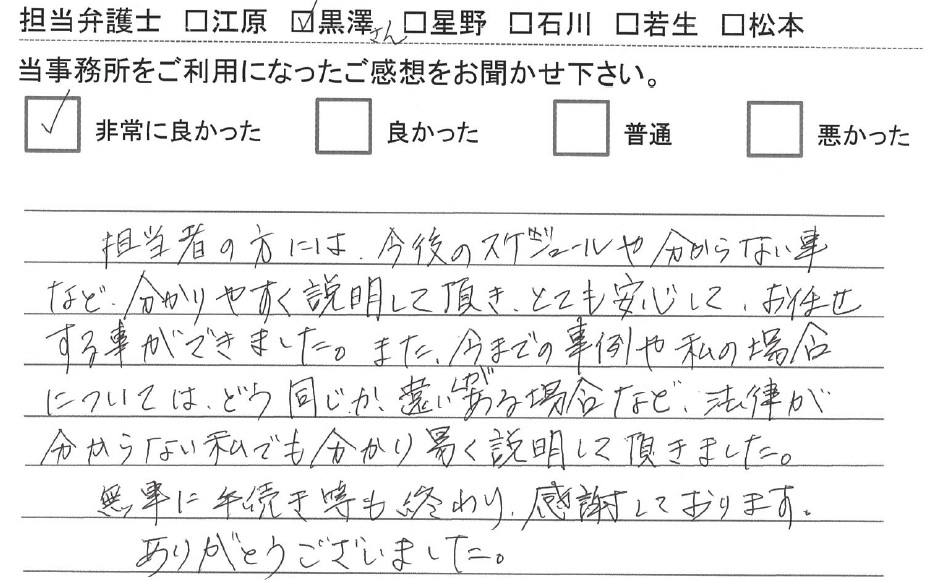 担当弁護士 □江原 ☑黒澤さん □星野 □石川 □若生 □松本
当事務所をご利用になったご感想をお聞かせ下さい。
☑ 非常に良かった □ 良かった □ 普通 □ 悪かった
担当者の方には、今後のスケジュールや分からない事
など、分かりやすく説明して頂き、とても安心して、お任せ
する事ができました。また、今までの事例や私の場合
については、どう同じか、違いがある場合など、法律が
分からない私でも分かり易く説明して頂きました。
無事に手続き等も終わり、感謝しております。
ありがとうございました。